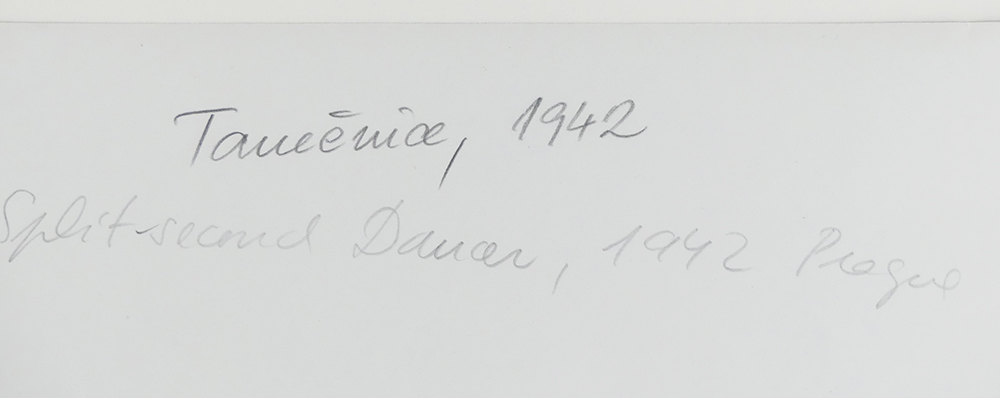 Tanečnice, 1942
Split-second Dancer, 1942 Prague